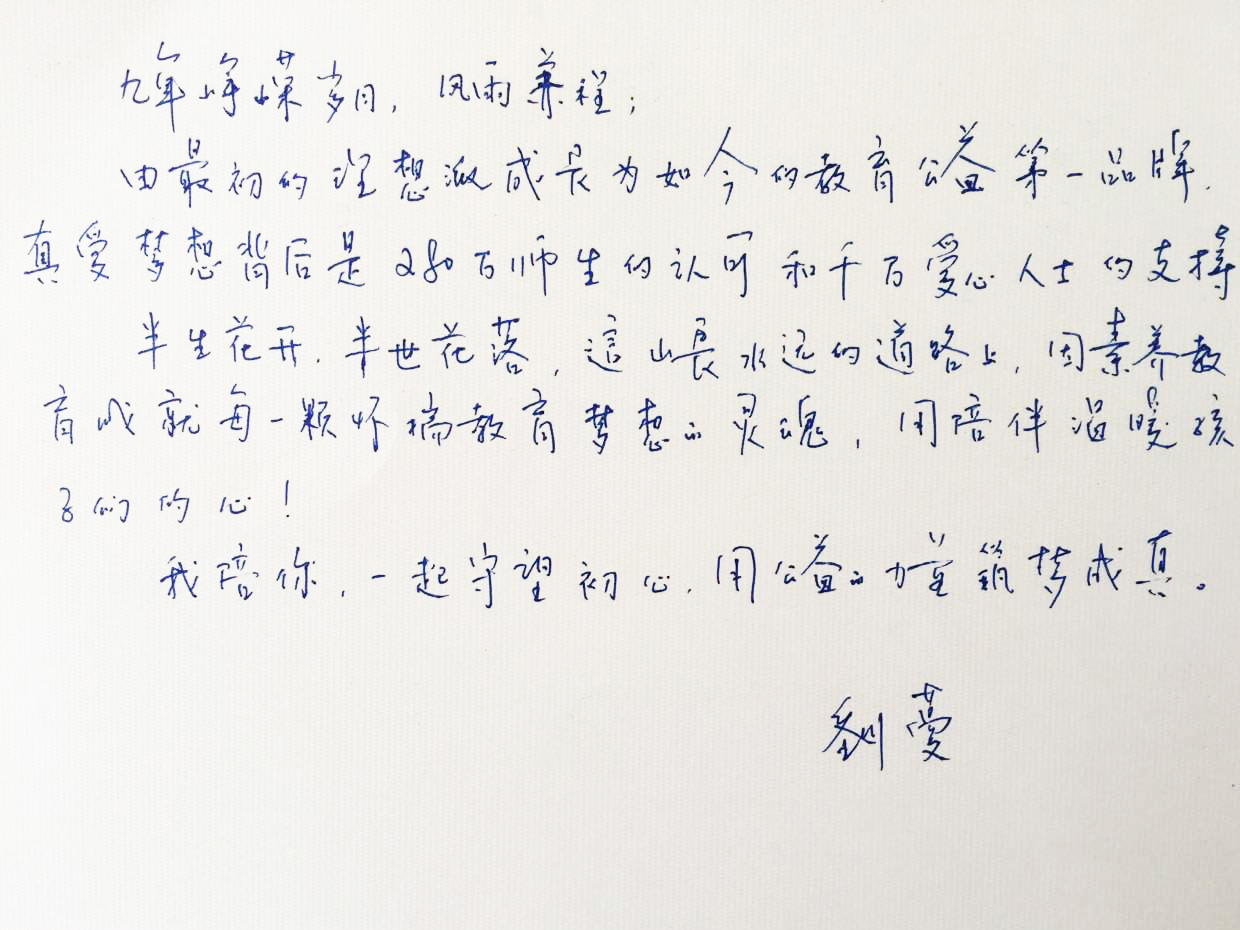 九年峥嵘岁月，风雨兼程；
由最初的理想派成長为如今的教育公益第一品牌，
真爱梦想背后是280万师生的认可和千万爱心人士的支持
半生花开，半世花落，這山長水远的道路上，因素养教
育成就每一颗怀揣教育梦想的灵魂，用陪伴温暖孩
子们的心！
我陪你，一起守望初心，用公益的力量筑梦成真。
劉蔓